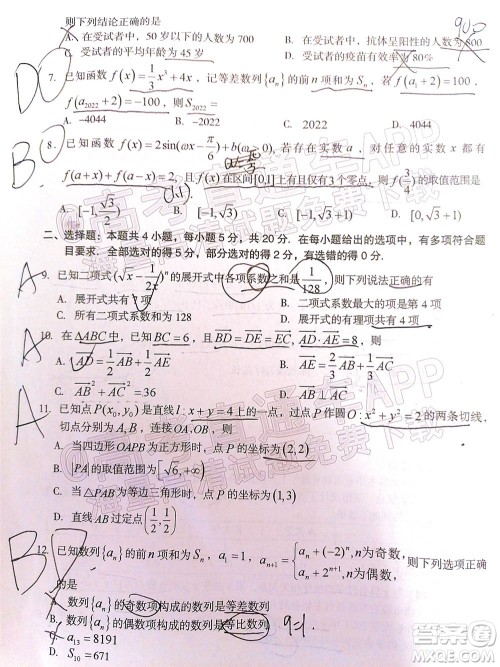 则下列结论正确的是
A. 在受试者中，50 岁以下的人数为 700 B. 在受试者中，抗体呈阳性的人数为 800
C. 受试者的平均年龄为 45 岁 D. 受试者的疫苗有效率为 80%
7. 已知函数 f(x)=1/3x³+4x，记等差数列{aₙ}的前 n 项和为 Sₙ，若 f(a₁+2)=100，
f(a₂₀₂₂+2)=-100，则 S₂₀₂₂=
A. -4044 B. -2022 C. 2022 D. 4044
8. 已知函数 f(x)=2sin(ωx-π/6)+b(ω>0)，若存在实数 a，对任意的实数 x 都有
f(a+x)+f(a-x)=2，且函数 f(x)在区间[0,1]有且仅有 3 个零点，则 f(3/2)的取值范围是
(a,1)
A. [-1,√3/2) B. [-1,√3) C. [-1,√3+1) D. [-1,√3+1)
二、选择题：本题共 4 小题，每小题 5 分，共 20 分．在每小题给出的选项中，有多项符合题目
要求．全部选对的得 5 分，部分选对的得 2 分，有选错的得 0 分．
9. 已知二项式(√x-1/2x)ⁿ的展开式中各项系数之和是1/128，则下列说法正确的有
A. 展开式共有 7 项 B. 二项式系数最大的项是第 4 项
C. 所有二项式系数和为 128 D. 展开式的有理项共有 4 项
10. 在△ABC 中，已知 BC=6，且BD=DE=EC，AD·AE=8，则
A. AD=1/2AB+1/2AE B. AE=1/3AB+1/2AC
C. AB²+AC²=36 D. AD⊥AE
11. 已知点 P(x₀,y₀)是直线 l：x+y=4上的一点，过点 P 作圆O：x²+y²=2的两条切线，
切点分别为 A,B，连接 OA,OB，则
A. 当四边形 OAPB 为正方形时，点 P 的坐标为(2,2)
B. |PA|的取值范围为[√6,+∞)
C. 当△PAB 为等边三角形时，点 P 的坐标为(1,3)
D. 直线AB过定点(1/2,1/2)
12. 已知数列{aₙ}的前 n 项和为 Sₙ，a₁=1，aₙ₊₁={aₙ+(-2)ⁿ, n为奇数, aₙ+2ⁿ⁺¹, n为偶数, 则下列选项正确
的是
A. 数列{aₙ}的奇数项构成的数列是等差数列
B. 数列{aₙ}的偶数项构成的数列是等比数列
C. a₁₃=8191
D. S₁₀=671